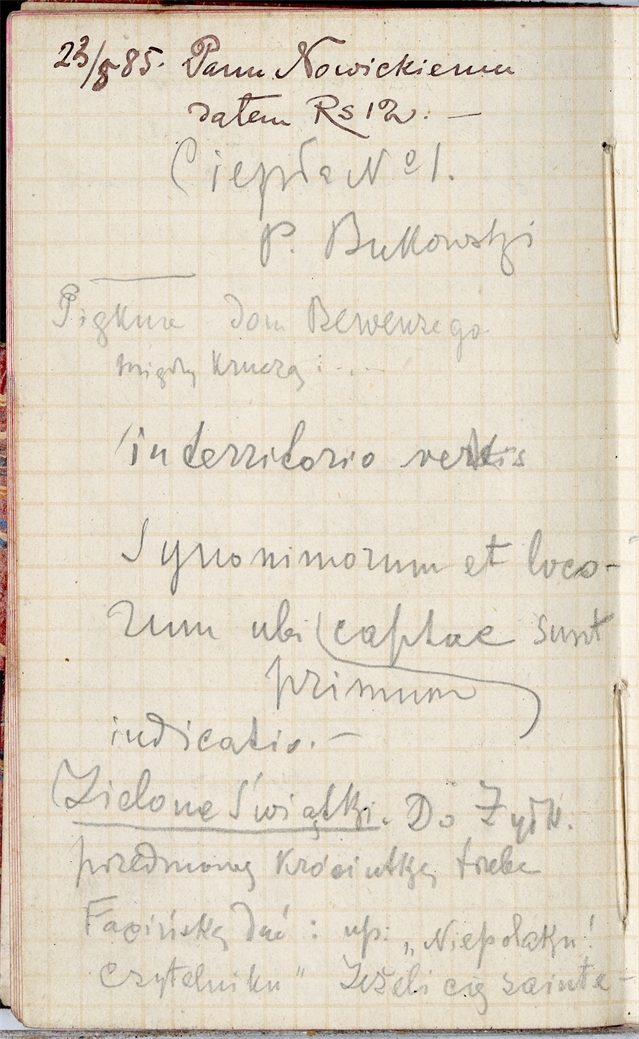 23/5 85. Panu Nowickiemu
dałem Rs 12. —
Ciepła No 1.
P. Bukowski
Piękna dom Bewenzego
między Kruczą : ...
in territorio
Synonimorum et loco-
rum ubi captae sunt
primum
indicatio. —
Zielone Świątki. Do Żydk.
przedmowę króciutką trzeba
Łacińską dać : np. „Niepolaku!
czytelniku” Jeżeli cię zainte-